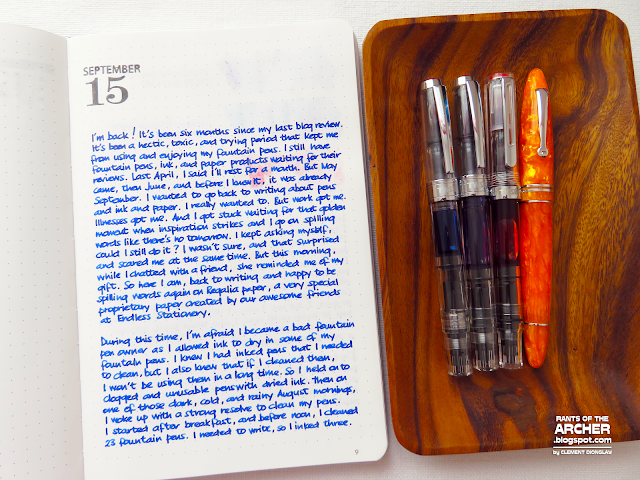 SEPTEMBER
15
I'm back! It's been six months since my last blog review.
It's been a hectic, toxic, and trying period that kept me
from using and enjoying my fountain pens. I still have
fountain pens, ink, and paper products waiting for their
reviews. Last April, I said I'll rest for a month. But May
came, then June, and before I knew it, it was already
September. I wanted to go back to writing about pens
and ink and paper. I really wanted to. But work got me.
Illnesses got me. And I got stuck waiting for that golden
moment when inspiration strikes and I go on spilling
words like there's no tomorrow. I kept asking myself,
could I still do it? I wasn't sure, and that surprised
and scared me at the same time. But this morning,
while I chatted with a friend, she reminded me of my
gift. So here I am, back to writing and happy to be
spilling words again on Regalia paper, a very special
proprietary paper created by our awesome friends
at Endless Stationery.
During this time, I'm afraid I became a bad fountain
pen owner as I allowed ink to dry in some of my
fountain pens. I knew I had inked pens that I needed
to clean, but I also knew that if I cleaned them,
I won't be using them in a long time. So I held on to
clogged and unusable pens with dried ink. Then on
one of those dark, cold, and rainy August mornings,
I woke up with a strong resolve to clean my pens.
I started after breakfast, and before noon, I cleaned
23 fountain pens. I needed to write, so I inked three.
9
RANTS OF THE
ARCHER
.blogspot.com
by CLEMENT DIONGLAY